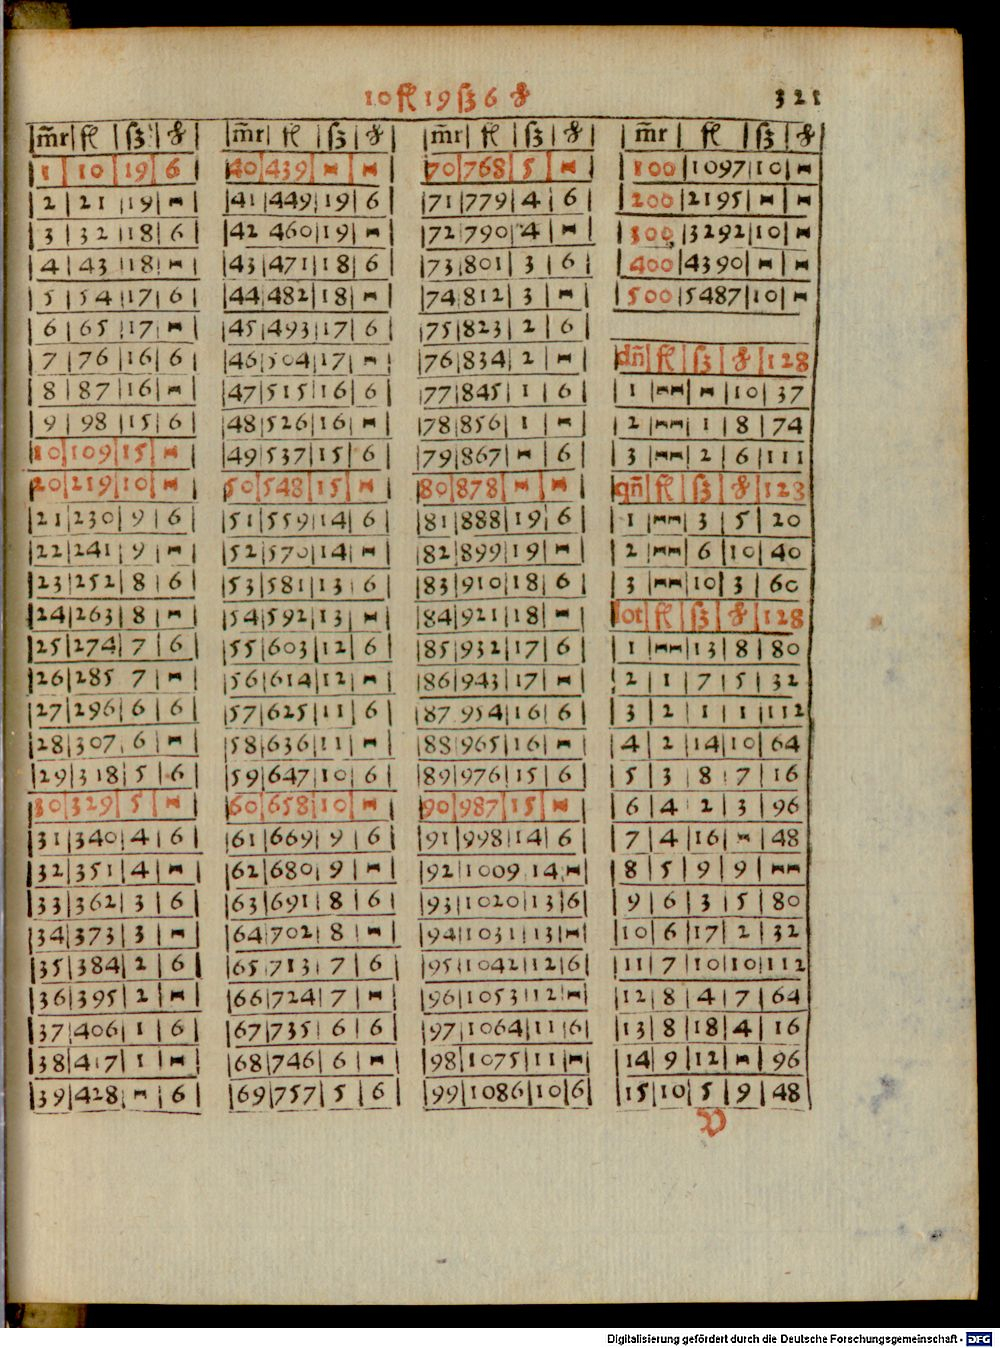 10 fl 19 ſʒ 6 ₰
321
m̃r | fl | ſʒ | ₰
1 | 10 | 19 | 6
2 | 21 | 19 | –
3 | 32 | 18 | 6
4 | 43 | 18 | –
5 | 54 | 17 | 6
6 | 65 | 17 | –
7 | 76 | 16 | 6
8 | 87 | 16 | –
9 | 98 | 15 | 6
10 | 109 | 15 | –
20 | 219 | 10 | –
21 | 230 | 9 | 6
22 | 241 | 9 | –
23 | 252 | 8 | 6
24 | 263 | 8 | –
25 | 274 | 7 | 6
26 | 285 7 | –
27 | 296 | 6 | 6
28 | 307 | 6 | –
29 | 318 | 5 | 6
30 | 329 | 5 | –
31 | 340 | 4 | 6
32 | 351 | 4 | –
33 | 362 | 3 | 6
34 | 373 | 3 | –
35 | 384 | 2 | 6
36 | 395 | 2 | –
37 | 406 | 1 | 6
38 | 417 | 1 | –
39 | 428 | – | 6
m̃r | fl | ſʒ | ₰
40 | 439 | – | –
41 | 449 | 19 | 6
42 460 | 19 | –
43 | 471 | 18 | 6
44 | 482 | 18 | –
45 | 493 | 17 | 6
46 | 504 | 17 | –
47 | 515 | 16 | 6
48 | 526 | 16 | –
49 | 537 | 15 | 6
50 | 548 | 15 | –
51 | 559 | 14 | 6
52 | 570 | 14 | –
53 | 581 | 13 | 6
54 | 592 | 13 | –
55 | 603 | 12 | 6
56 | 614 | 12 | –
57 | 625 | 11 | 6
58 | 636 | 11 | –
59 | 647 | 10 | 6
60 | 658 | 10 | –
61 | 669 | 9 | 6
62 | 680 | 9 | –
63 | 691 | 8 | 6
64 | 702 | 8 | –
65 | 713 | 7 | 6
66 | 724 | 7 | –
67 | 735 | 6 | 6
68 | 746 | 6 | –
69 | 757 | 5 | 6
m̃r | fl | ſʒ | ₰
70 | 768 | 5 | –
71 | 779 | 4 | 6
72 | 790 | 4 | –
73 | 801 | 3 | 6
74 | 812 | 3 | –
75 | 823 | 2 | 6
76 | 834 | 2 | –
77 | 845 | 1 | 6
78 | 856 | 1 | –
79 | 867 | – | 6
80 | 878 | – | –
81 | 888 | 19 | 6
82 | 899 | 19 | –
83 | 910 | 18 | 6
84 | 921 | 18 | –
85 | 932 | 17 | 6
86 | 943 | 17 | –
87 954 | 16 | 6
88 | 965 | 16 | –
89 | 976 | 15 | 6
90 | 987 | 15 | –
91 | 998 | 14 | 6
92 | 1009 14 | –
93 | 1020 | 13 | 6
94 | 1031 | 13 | –
95 | 1042 | 12 | 6
96 | 1053 | 12 | –
97 | 1064 | 11 | 6
98 | 1075 | 11 | –
99 | 1086 | 10 | 6
m̃r | fl | ſʒ | ₰
100 | 1097 | 10 | –
200 | 2195 | – | –
300 | 3292 | 10 | –
400 | 4390 | – | –
500 | 5487 | 10 | –
dñ | fl | ſʒ | ₰ | 128
1 | –– | – | 10 | 37
2 | –– | 1 | 8 | 74
3 | –– | 2 | 6 | 111
qñ | fl | ſʒ | ₰ | 123
1 | –– | 3 | 5 | 20
2 | –– | 6 | 10 | 40
3 | –– | 10 | 3 | 60
lot | fl | ſʒ | ₰ | 128
1 | –– | 13 | 8 | 80
2 | 1 | 7 | 5 | 32
3 | 2 | 1 | 1 | 112
4 | 2 | 14 | 10 | 64
5 | 3 | 8 | 7 | 16
6 | 4 | 2 | 3 | 96
7 | 4 | 16 | – | 48
8 | 5 | 9 | 9 | ––
9 | 6 | 3 | 5 | 80
10 | 6 | 17 | 2 | 32
11 | 7 | 10 | 10 | 112
12 | 8 | 4 | 7 | 64
13 | 8 | 18 | 4 | 16
14 | 9 | 12 | – | 96
15 | 10 | 5 | 9 | 48
V
Digitalisierung gefördert durch die Deutsche Forschungsgemeinschaft - DFG